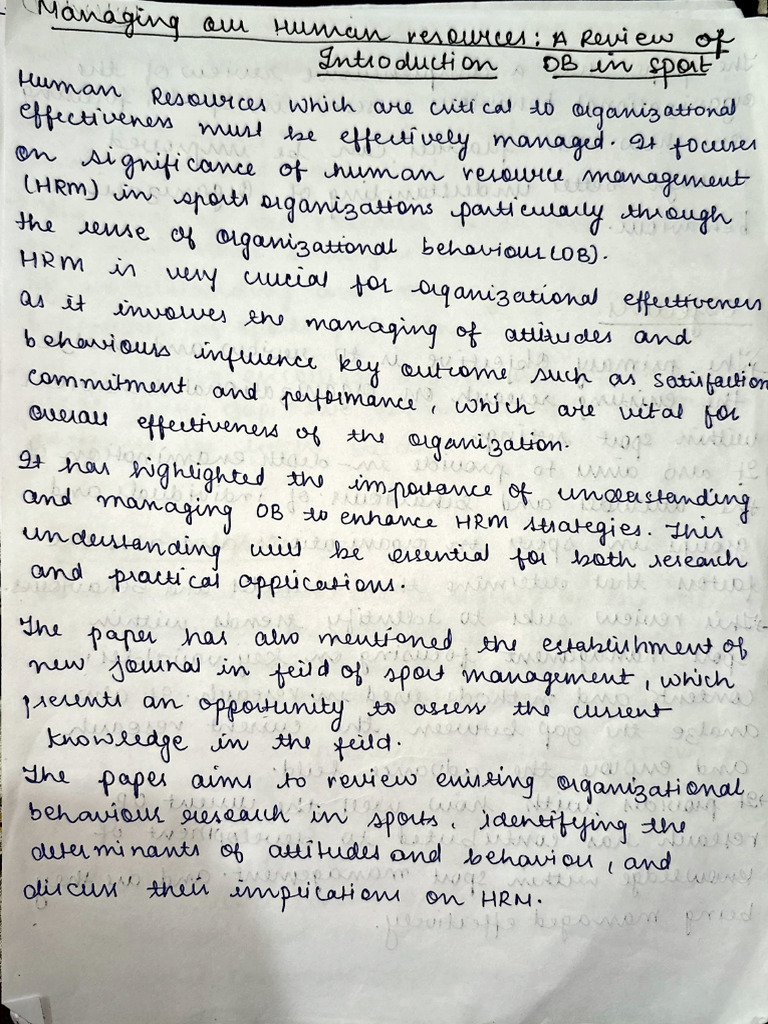 Managing our Human resources: A Review of
Introduction OB in sport
Human Resources which are critical to organizational
effectiveness must be effectively managed. It focuses
on significance of human resource management
(HRM) in sports organizations particularly through
the lense of organizational behaviour (OB).
HRM is very crucial for organizational effectiveness
as it involves the managing of attitudes and
behaviours influence key outcome such as satisfaction
commitment and performance, which are vital for
overall effectiveness of the organization.
It has highlighted the importance of understanding
and managing OB to enhance HRM strategies. This
understanding will be essential for both research
and practical applications.
The paper has also mentioned the establishment of
new journal in feild of sport management, which
presents an opportunity to assess the current
knowledge in the feild.
The paper aims to review existing organizational
behaviour research in sports, identifying the
determinants of attitudes and behaviour, and
discuss their implications on HRM.